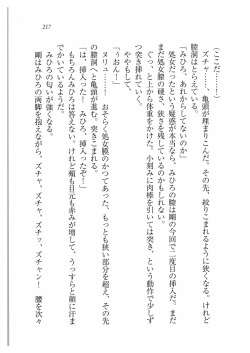 217
（ここだ……！）
ズチャ……、亀頭が埋まりこんだ。その先、絞りこまれるように狭くなる。けれど
膣洞はとらえている。
「みひろ、あれからしてないのか」
処女だったという疑惑が本当なら、みひろの膣は剛の今回で二度目の挿入だ。まだ
まだ処女膣の硬さ、狭さを残しているのかもしれない。
ぐっ、と上から体重をかけた。小刻みに肉棒を引いては突き、という動作で少しず
つ突き挿れていく。
ややもして、
「うおん！」
ヌリュ……！　おそらく処女膜のかつてあった、もっとも狭い部分を超え、その先
の膣洞へと亀頭が進む。突きこまれる。
「は、挿入った！　みひろ、挿入ったぞ！」
もちろんみひろは答えない。けれど頬も目元も赤みが増して、うっすらと顔に汗ま
でかいているようだ。
みひろの匂いが強くなる。
剛はみひろの両脚を抱えながら、ズチャ、ズチャ、ズチッ、ズチャン！　腰を次々